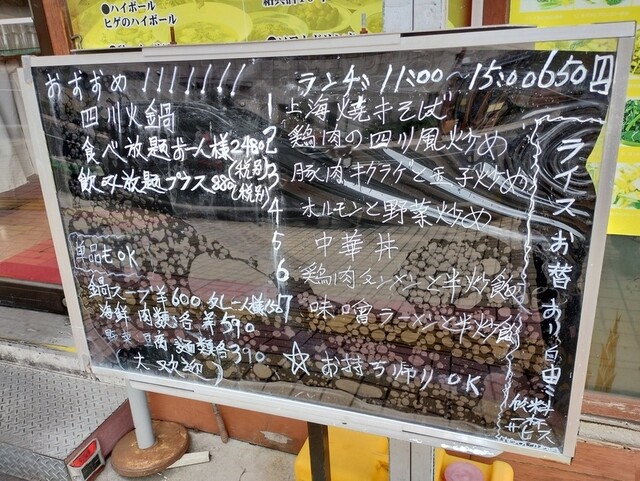 ●ハイボール
ヒゲのハイボール
おすすめ !!!!!!!
四川火鍋
食べ放題お一人様2480(税別)
飲み放題プラス880(税別)
単品もOK
鍋スープ¥600
海鮮 肉類各¥590
野菜 豆腐 麺類各390
(大欢迎)
ランチ 11:00〜15:00 650円
1 上海焼きそば
2 鶏肉の四川風炒め
3 豚肉キクラゲと玉子炒め
4 ホルモンと野菜炒め
5 中華丼
6 鶏肉タンメンと半炒飯
7 味噌ラーメンと半炒飯
☆お持ち帰りOK
ライスお替おり自由
飲料
サービス